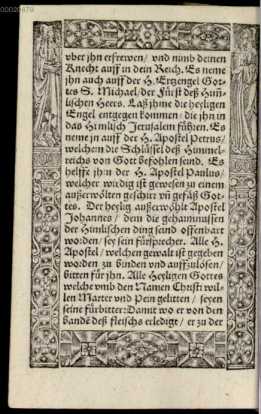 00020679
vber jhn erfrewen / vnd nimb deinen
Knecht auff in dein Reich. Es neme
jhn auch auff der H. Ertzengel Got-
tes S. Michael / der Fürst deß Him̃-
lischen Heers. Laß jhme die heyligen
Engel entgegen kommen / die jhn in
das Himlisch Jerusalem führen. Es
neme jn auff der H. Apostel Petrus /
welchem die Schlüssel deß Himmel-
reichs von Gott befohlen seind. Es
helffe jhm der H. Apostel Paulus /
welcher wirdig ist gewesen zu einem
außerwölten geschirr vñ gefäß Got-
tes. Der heylig außerwöhlt Apostel
Johannes / dem die gehaimnussen
der Himlischen ding seind offenbart
worden / sey sein fürsprecher. Alle H.
Apostel / welchen gewalt ist gegeben
worden zu binden vnd auffzulösen /
bitten für jhn. Alle Heyligen Gottes
welche vmb den Namen Christi wil-
len Marter vnd Pein gelitten / seyen
seine fürbitter: Damit wo er von den
bandẽ deß fleischs erledigt / er zu der